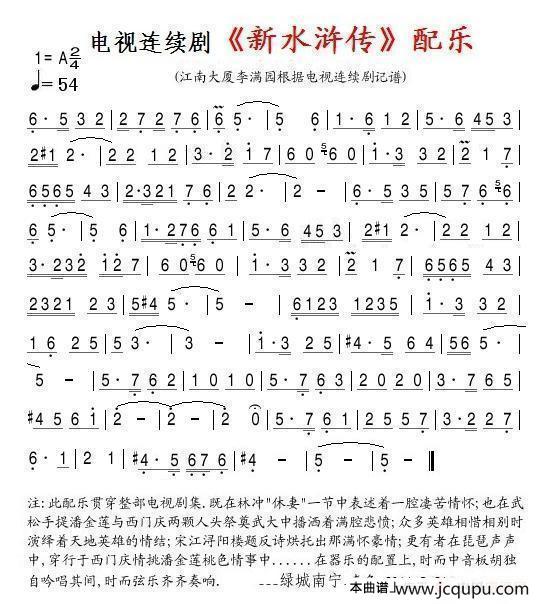 电视连续剧《新水浒传》配乐
1=A 2/4
♩=54
(江南大厦李满园根据电视连续剧记谱)
6· 5 3 2 | 2 7 2 7 6 | 6 5· | 5 6 | 1· 6 1 2 | 5· 6 4 5 3 |
2 #1 2· | 2 2 | 3· 2 1 7 | 6 0 5 6 0 | 1· 3 3 | 2 1 7 |
6 5 6 5 4 3 | 2·3 2 1 7 6 | 2 2 | 2 - | 6· 5 3 5 | 5 7 5 6 |
6 5· | 5 6 | 1·2 7 6 6 1 | 5· 6 4 5 3 | 2 #1 2· | 2 2 |
3·2 3 2 1 2 7 | 6 0 5 6 0 | 1· 3 3 | 2 1 7 | 6 5 6 5 4 3 |
2 3 2 1 2 | 5 #4 5· | 5 - | 6 1 2 3 1 2 3 5 | 2 3 2 1 6 |
1 6 2 5 | 5 - | 1· 6 1 2 | 5· 6 4 5 3 |
5 - | 5· 7 6 2 | 1 0 1 0 | 5· 7 6 2 | 2 0 2 0 | 3· 2 1 7 |
#4 5 6 1 | 2 - | 2 - | 2· 1 7 | 2 5 5 7 | 3· 2 1 7 |
6· 1 | 2 2 4 | #4· 5 6 7 6 | #4 5· | 5 - | 5 - ‖
注: 此配乐贯穿整部电视剧集. 既在林冲"休妻"一节中表述着一腔凄苦情怀; 也在武
松手提潘金莲与西门庆两颗人头祭奠武大中播洒着满腔悲愤; 众多英雄相惜相别时
演绎着天地英雄的情结; 宋江浔阳楼题反诗烘托出那满怀豪情; 更有者在琵琶声声
中, 穿行于西门庆情挑潘金莲桃色情事中......在器乐的配置上, 时而中音板胡独
自吟唱其间, 时而弦乐齐齐奏响.
---绿城南宁
本曲谱上www.jcqupu.com